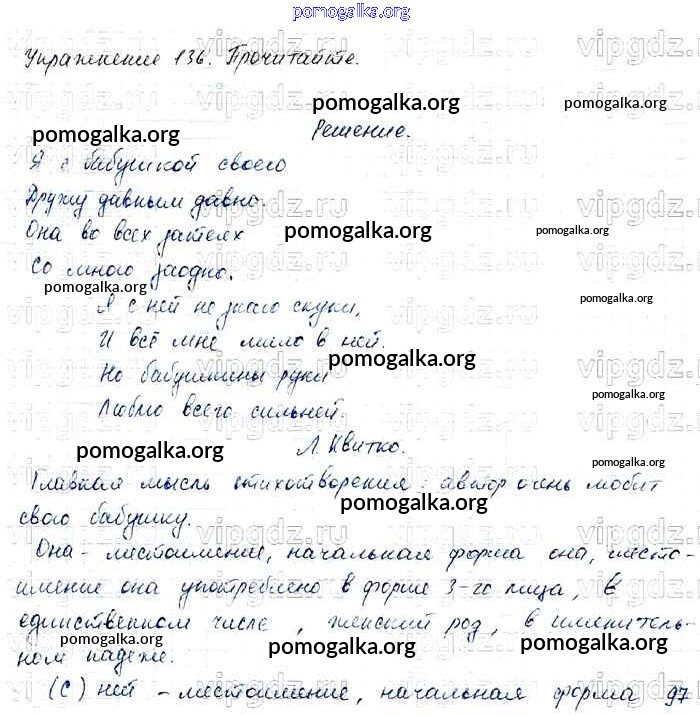 pomogalka.org
Упражнение 136. Прочитайте.
pomogalka.org pomogalka.org
pomogalka.org Решение.
Я с бабушкой своею
Дружу давным давно.
Она во всех затеях pomogalka.org pomogalka.org
Со мною заодно.
pomogalka.org Я с ней не знаю скуки, pomogalka.org
И всё мне мило в ней.
pomogalka.org
Но бабушкины руки
Люблю всего сильней. pomogalka.org
pomogalka.org Л. Квитко.
pomogalka.org
Главная мысль стихотворения: автор очень любит
pomogalka.org
свою бабушку.
Она - местоимение, начальная форма она, место-
имение она употреблено в форме 3-го лица, в
единственном числе, женский род, в именитель-
pomogalka.org pomogalka.org pomogalka.org
ном падеже.
(С) ней - местоимение, начальная форма 97